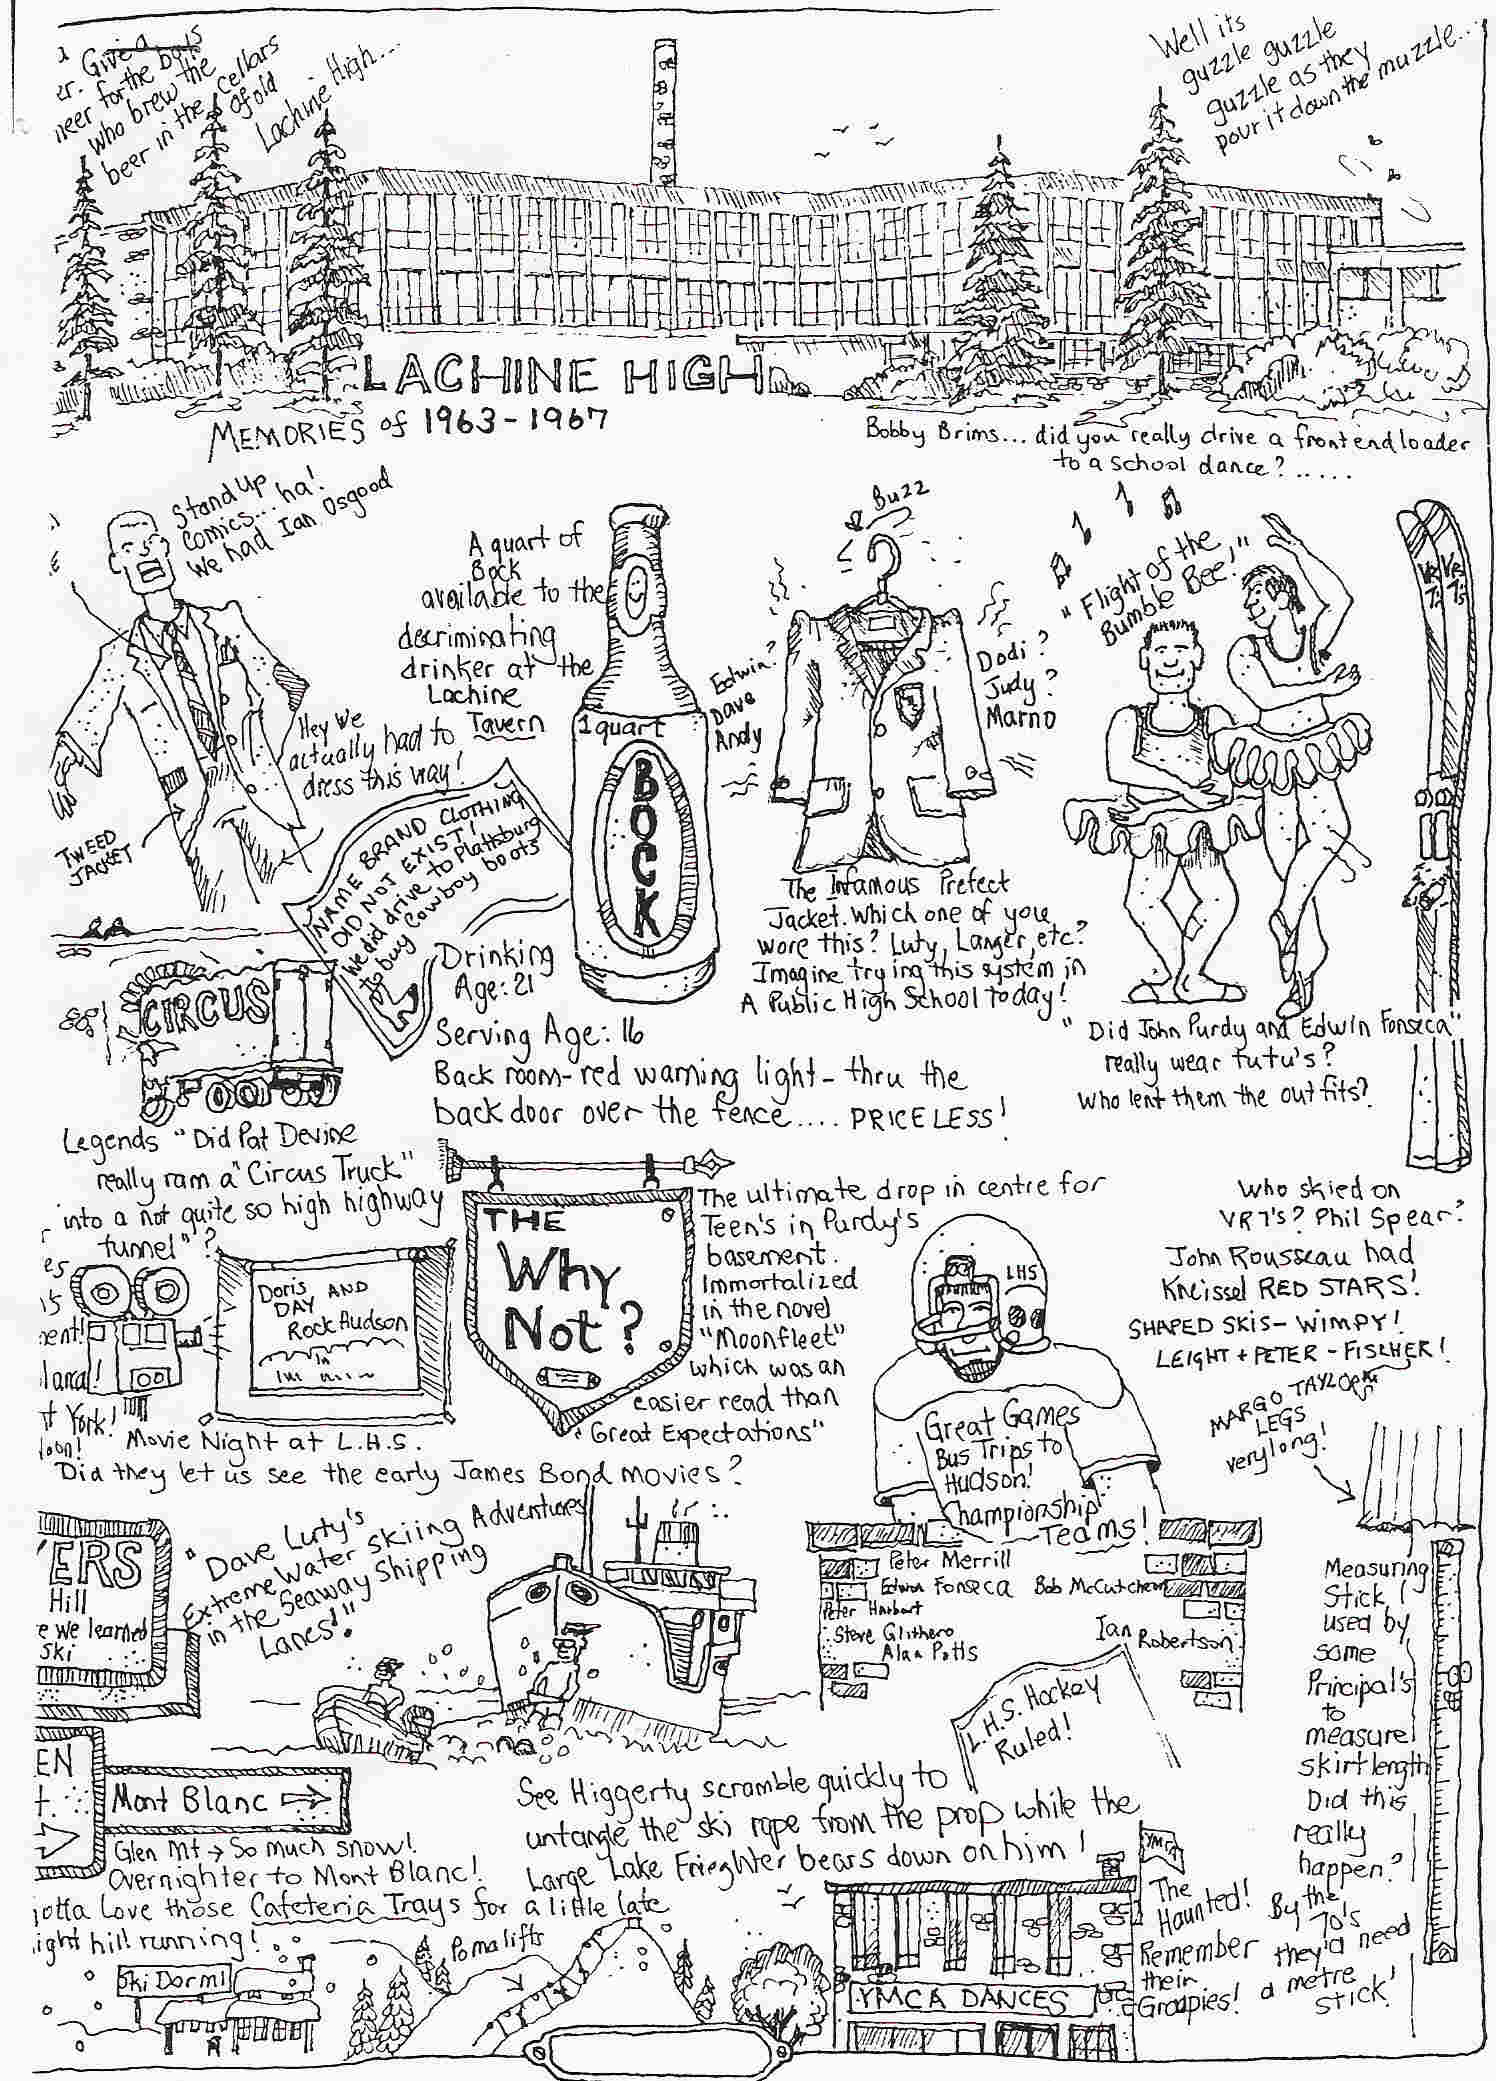 Give a
er. for the boys
neer who brew the
beer in the cellars
of old
Lachine High...
Well its
guzzle guzzle
guzzle as they
pour it down the muzzle...
LACHINE HIGH
MEMORIES of 1963-1967
Bobby Brims... did you really drive a front end loader
to a school dance?.....
Stand up
Comics... ha!
We had Ian Osgood
Hey we
actually had to
dress this way!
TWEED
JACKET
NAME BRAND CLOTHING
DID NOT EXIST!
We did drive to Plattsburg
to buy Cowboy boots
A quart of
Bock
available to the
decriminating
drinker at the
Lachine
Tavern
1 quart
BOCK
Drinking
Age: 21
Serving Age: 16
Back room-red warning light - thru the
back door over the fence.... PRICELESS!
Buzz
Edwin?
Dave
Andy
Dodi?
Judy?
Marno
The Infamous Prefect
Jacket. Which one of you
wore this? Luty, Langer, etc?
Imagine trying this system in
A Public High School today!
"Flight of the
Bumble Bee!"
"Did John Purdy and Edwin Fonseca"
really wear tutu's?
Who lent them the outfits?
VR
7's
VR
7's
Who skied on
VR7's? Phil Spear?
John Rousseau had
Kneissel RED STARS!
SHAPED SKIS- WIMPY!
LEIGHT + PETER - FISCHER!
CIRCUS
Legends "Did Pat Devine
really ram a "Circus Truck"
into a not quite so high highway
tunnel"?
es
is
ment!
lana!
t York!
Doris
DAY AND
Rock Hudson
in
Movie Night at L.H.S.
Did they let us see the early James Bond movies?
THE
Why
Not?
The ultimate drop in centre for
Teen's in Purdy's
basement.
Immortalized
in the novel
"Moonfleet"
which was an
easier read than
Great Expectations"
LHS
Great Games
Bus Trips to
Hudson!
Championship
Teams!
Peter Merrill
Edwin Fonseca Bob McCutcheon
Peter Harbert
Steve Glithero
Alan Potts
Ian Robertson
L.H.S. Hockey
Ruled!
MARGO TAYLOR
LEGS
very long!
Measuring
Stick!
used by
some
Principal's
to
measure
skirt length
Did this
really
happen?
By the
70's
they'd need
a metre
stick!
'ERS
Hill
e we learned
Ski
"Dave Luty's
Extreme Water skiing Adventures
in the Seaway Shipping
Lanes!"
See Higgerty scramble quickly to
untangle the ski rope from the prop while the
Large Lake Frieghter bears down on him!
EN
t.
Mont Blanc
Glen Mt → So much snow!
Overnighter to Mont Blanc!
jotta Love those Cafeteria Trays for a little late
ight hill running!
Ski Dorm!
Pomalifts
YMCA
YMCA DANCES
The
Haunted!
Remember
their
Groupies!